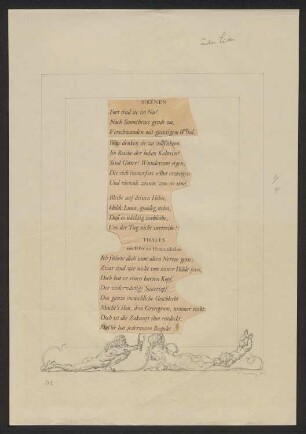 SIRENEN
Fort sind sie im Nu!
Nach Samothrace grade zu,
Verschwunden mit günstigem Wind.
Was denken sie zu vollführen
Im Reiche der hohen Kabiren?
Sind Götter! Wundersam eigen,
Die sich immerfort selbst erzeugen
Und niemals wissen, was sie sind.
Bleibe auf deinen Höhn,
Holde Luna, gnädig stehn,
Daß es nächtig verbleibe,
Uns der Tag nicht vertreibe!
THALES
am Ufer zu Homunculus
Ich führte dich zum alten Nereus gern;
Zwar sind wir nicht von seiner Höhle fern,
Doch hat er einen harten Kopf,
Der widerwärtige Sauertopf.
Das ganze menschliche Geschlecht
Macht's ihm, dem Griesgram, nimmer recht.
Doch ist die Zukunft ihm entdeckt,
Dafür hat jedermann Respekt